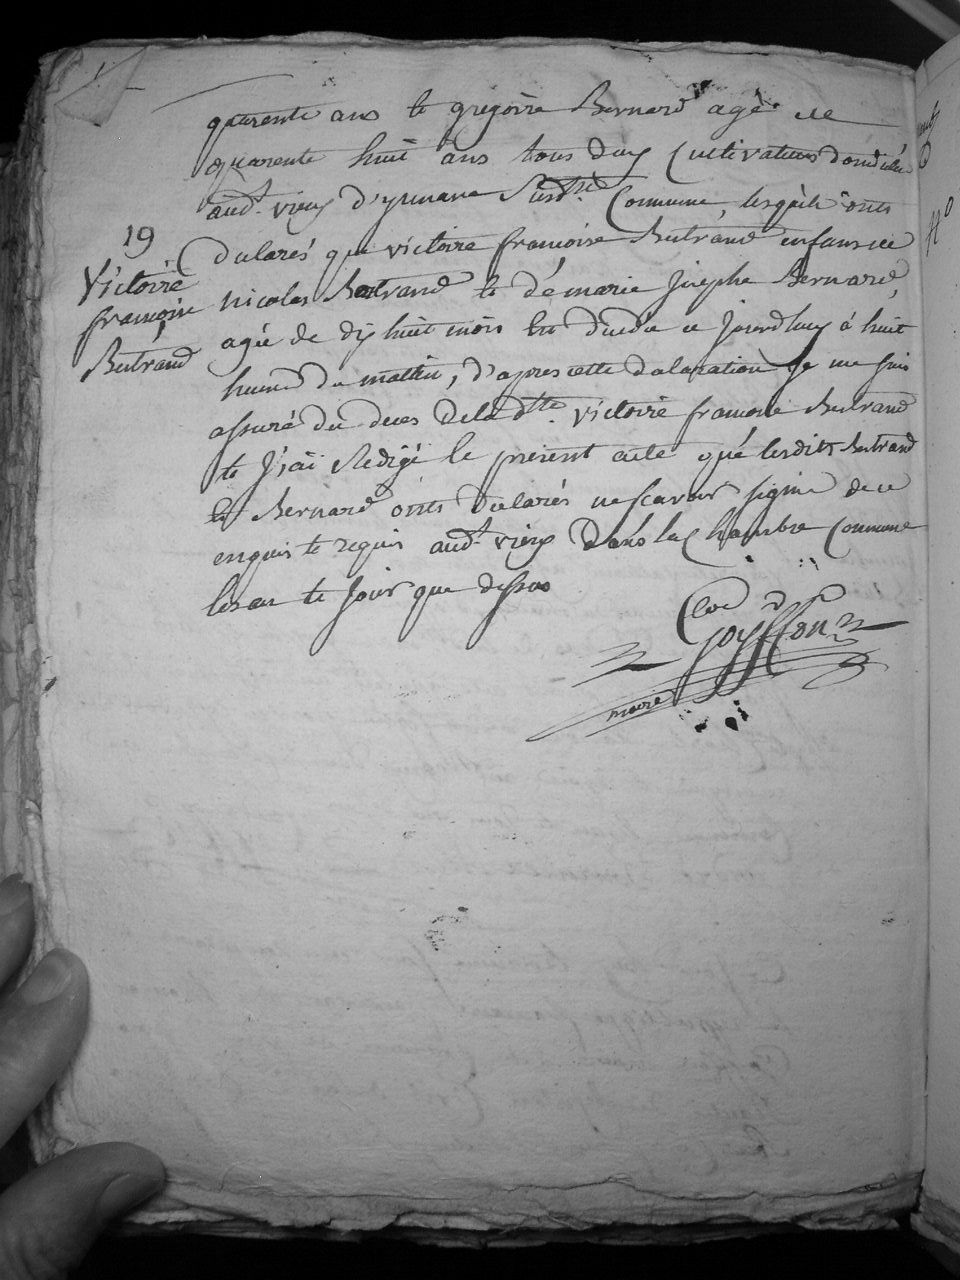 quarente ans te gregoire Bernard agé de
quarente huit ans tous duy Cultivateur domicilié
audt. vieuy d'yzenave susdtte. Commune, lesquels onts
19
Victoire
francoise
Bertrand
dalarés que victoire francoise Bertrand enfans de
nicolas Bertrand te de marie Josephe Bernard,
agée de diy huit mois est ducedée ce Jourdhuy à huit
heures du mattin, d'apres cette dalaration Je me suis
assuré du deces de ladtte. victoire francoise Bertrand
te J'ai Redigé le present acte que lesdits Bertrand
et Bernard onts dalarés ne scavoir signé de ce
enquis te requis audt. vieuy dans la Chambre Commune
les an te Jour que dessus
Goyffon
maire